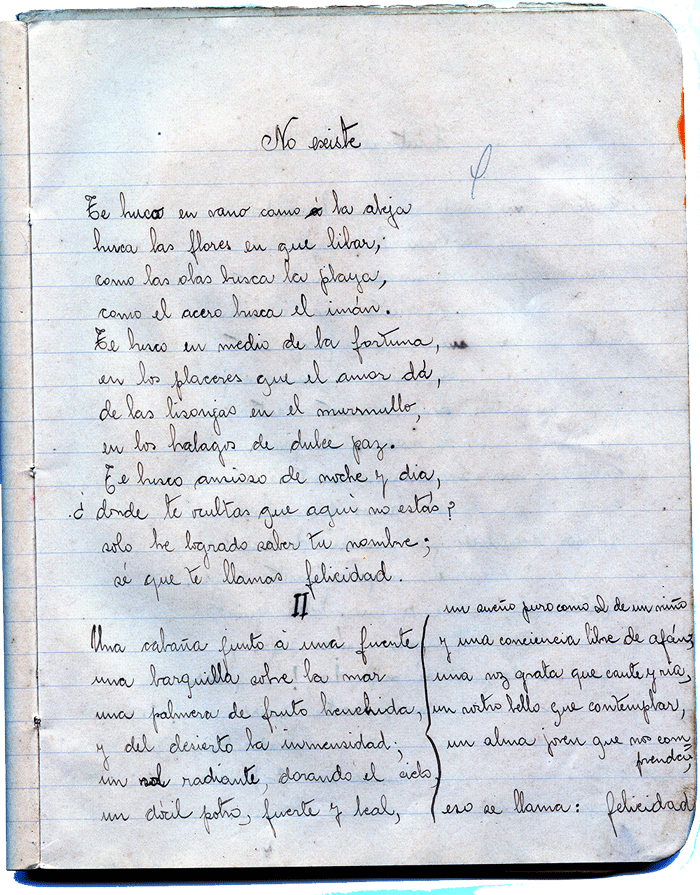 No existe
Te busco en vano como á la abeja
busca las flores en que libar,
como las olas busca la playa,
como el acero busca el imán.
Te busco en medio de la fortuna,
en los placeres que el amor dá,
de las lisonjas en el murmullo,
en los halagos de dulce paz.
Te busco ansioso de noche y dia,
¿donde te ocultas que aqui no estás?
solo he logrado saber tu nombre;
sé que te llamas felicidad.
II
Una cabaña junto à una fuente
una barquilla sobre la mar
una palmera de fruto henchida,
y del desierto la inmensidad;
un sol radiante, dorando el cielo,
un dócil potro, fuerte y leal,
un sueño puro como el de un niño
y una conciencia libre de afán,
una voz grata que cante y ria,
un rostro bello que contemplar,
un alma joven que nos com
prenda,
eso se llama: felicidad